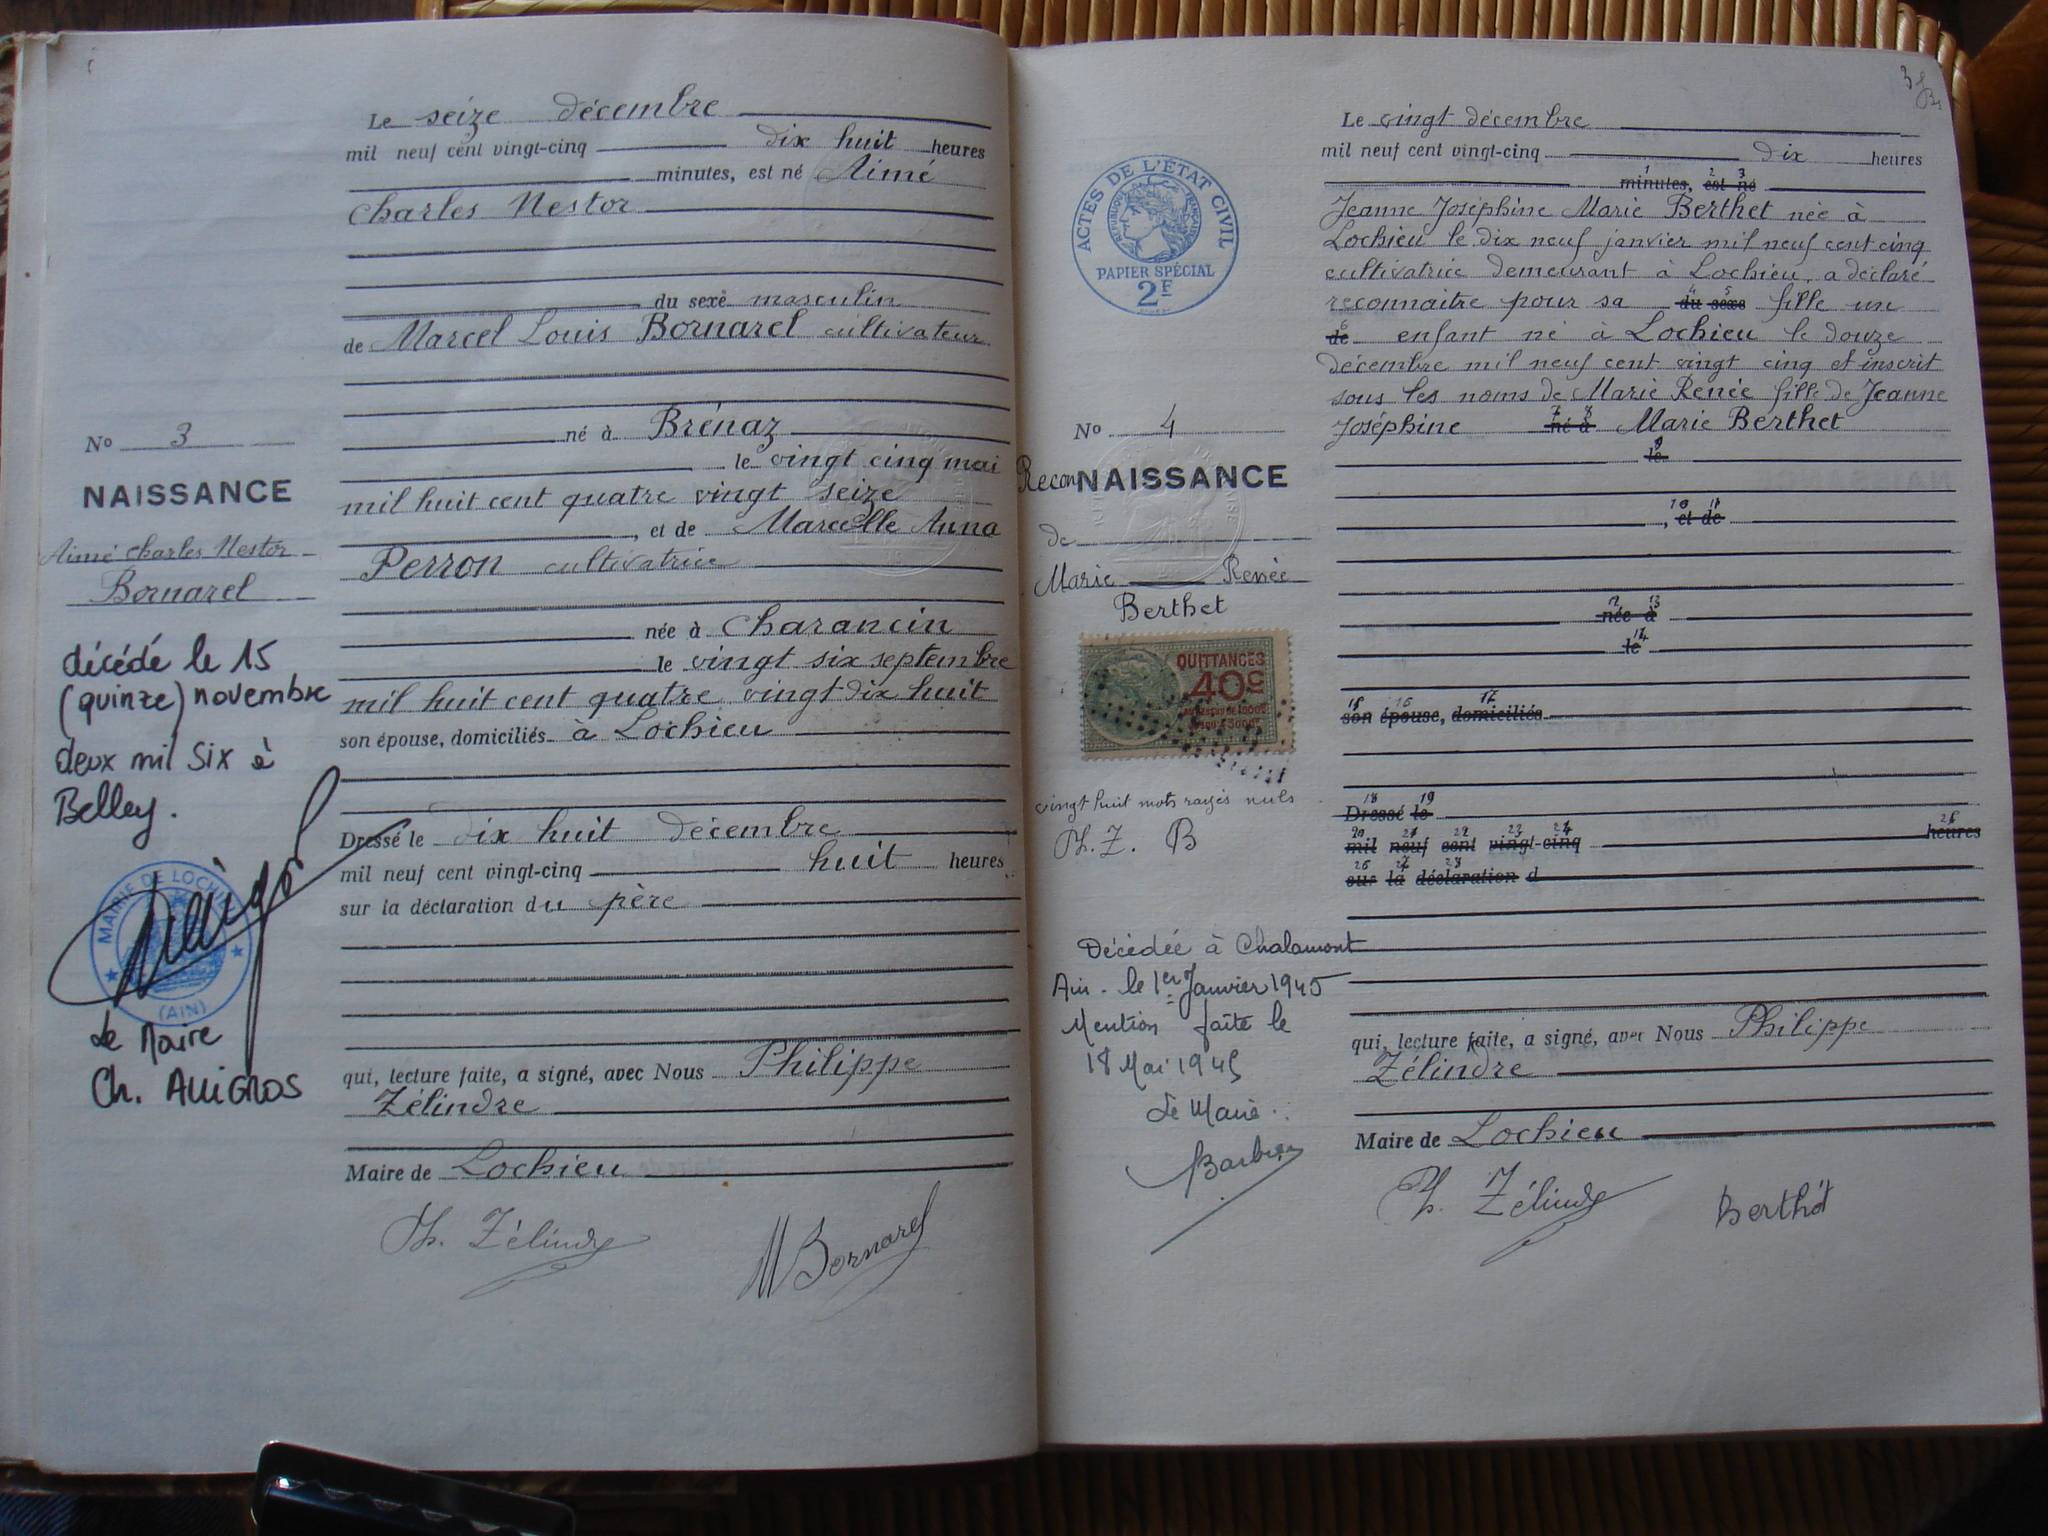 Le seize décembre
mil neuf cent vingt-cinq dix huit heures
minutes, est né Aimé
Charles Nestor
du sexe masculin
de Marcel Louis Bornarel cultivateur
né à Brénaz
le vingt cinq mai
mil huit cent quatre vingt seize
, et de Marcelle Anna
Perron cultivatrice
née à Charancin
le vingt six septembre
mil huit cent quatre vingt dix huit
son épouse, domiciliés à Lochieu
Dressé le dix huit décembre
mil neuf cent vingt-cinq huit heures
sur la déclaration du père
qui, lecture faite, a signé, avec Nous Philippe
Zélindre
Maire de Lochieu
Ph. Zélindre
M Bornarel
No 3
NAISSANCE
Aimé Charles Nestor
Bornarel
décédé le 15
(quinze) novembre
deux mil six à
Belley.
MAIRIE DE LOCHIEU
(AIN)
Le Maire
Ch. AUIGROS
Le vingt décembre
mil neuf cent vingt-cinq dix heures
1 2 3
minutes, est né
Jeanne Joséphine Marie Berthet née à
Lochieu le dix neuf janvier mil neuf cent cinq
cultivatrice demeurant à Lochieu, a déclaré
4 5
reconnaitre pour sa du sexe fille un
6
de enfant né à Lochieu le douze
décembre mil neuf cent vingt cinq et inscrit
sous les noms de Marie Renée fille de Jeanne
7 8
Joséphine né à Marie Berthet
9
le
10 11
, et de
12 13
née à
14
le
15 16 17
son épouse, domiciliés
18 19
Dressé le
20 21 22 23 24 25
mil neuf cent vingt-cinq heures
26 27 28
sur la déclaration d
qui, lecture faite, a signé, avec Nous Philippe
Zélindre
Maire de Lochieu
Ph. Zélindre
Berthet
ACTES DE L'ÉTAT CIVIL
RÉPUBLIQUE FRANÇAISE
PAPIER SPÉCIAL
2F
No 4
ReconNAISSANCE
de
Marie Renée
Berthet
QUITTANCES
40c
vingt huit mots rayés nuls
Ph. Z. B
Décédée à Chalamont
Ain. le 1er Janvier 1945
Mention faite le
18 Mai 1945
Le Maire